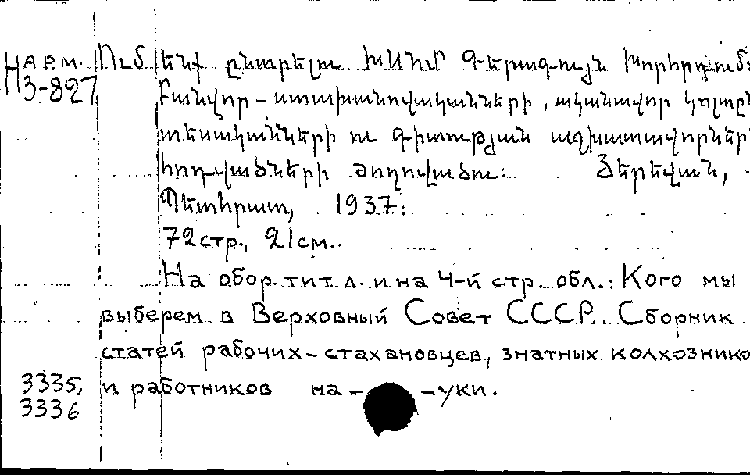 На арм. Ում ենք ընտրելու ԽՍՀՄ Գերագույն Խորհրդում
Н3-827 Բանվոր-ստախանովականների, ականավոր կոլտն
տեսականների ու գիտության աշխատավորների
հոդվածների ժողովածու: Յերեվան,
Պետհրատ, 1937:
72 стр., 21 см.
На обор. тит. л. и на 4-й стр. обл.: Кого мы
выберем в Верховный Совет СССР. Сборник
статей рабочих-стахановцев, знатных колхознико
3335, и работников на- -уки.
3336